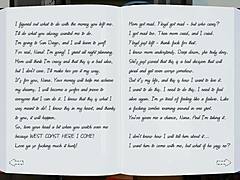 I figured out what to do with the money you left me.
I'll do what you always wanted me to do.
I'm going to San Diego, and I will learn to surf!
I'm real, Nana. I'm going! I spent all night planning.
Mum will think I'm crazy and that this is a bad idea,
but I don't care. I'll make her see it my way.
It's for you, Nana. Your money will help me achieve
my dreams. I will become a surfer and prove to
everyone that I can do it. I know that this is what I
was meant to do! I know this in my heart, and thanks
to you, it will happen.
So, turn your head a bit when you watch over me
because WEST COAST HERE I COME!
Love ya so fucking much it hurts!
Mom got mad. Floyd got mad - but who cares?
I got mad too. Then mom cried, and I cried.
Floyd just left - thank fuck for that.
I know mom understands. Deep down, she truly does.
She's just scared that this is a bad decision that will
goad and get even surge somehow.
But it's my life, and this is how I want to live it.
I want to do this. I need to do this. I need to feel
alive again. I'm so tired of feeling like a failure. Like
a fucking zombie running around in an empty shell.
You've given me a chance, Nana. And I'm taking it.
I don't know how I will tell him about it...
I want him to come with me, but what if he says no?